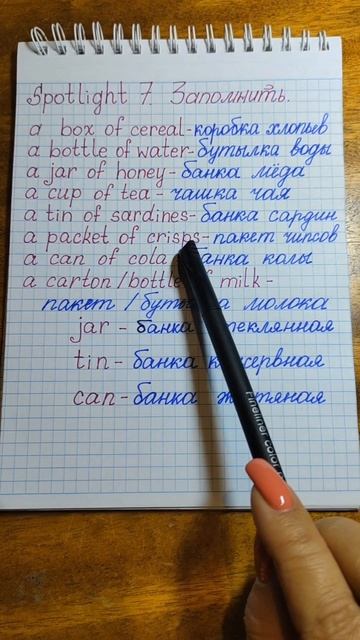 Spotlight 7. Запомнить.
a box of cereal-коробка хлопьев
a bottle of water-бутылка воды
a jar of honey-банка мёда
a cup of tea-чашка чая
a tin of sardines-банка сардин
a packet of crisps-пакет чипсов
a can of cola колы
a carton/ of milk-
пакет / молока
jar - банка
tin - банка
can-банка
Fineliner color